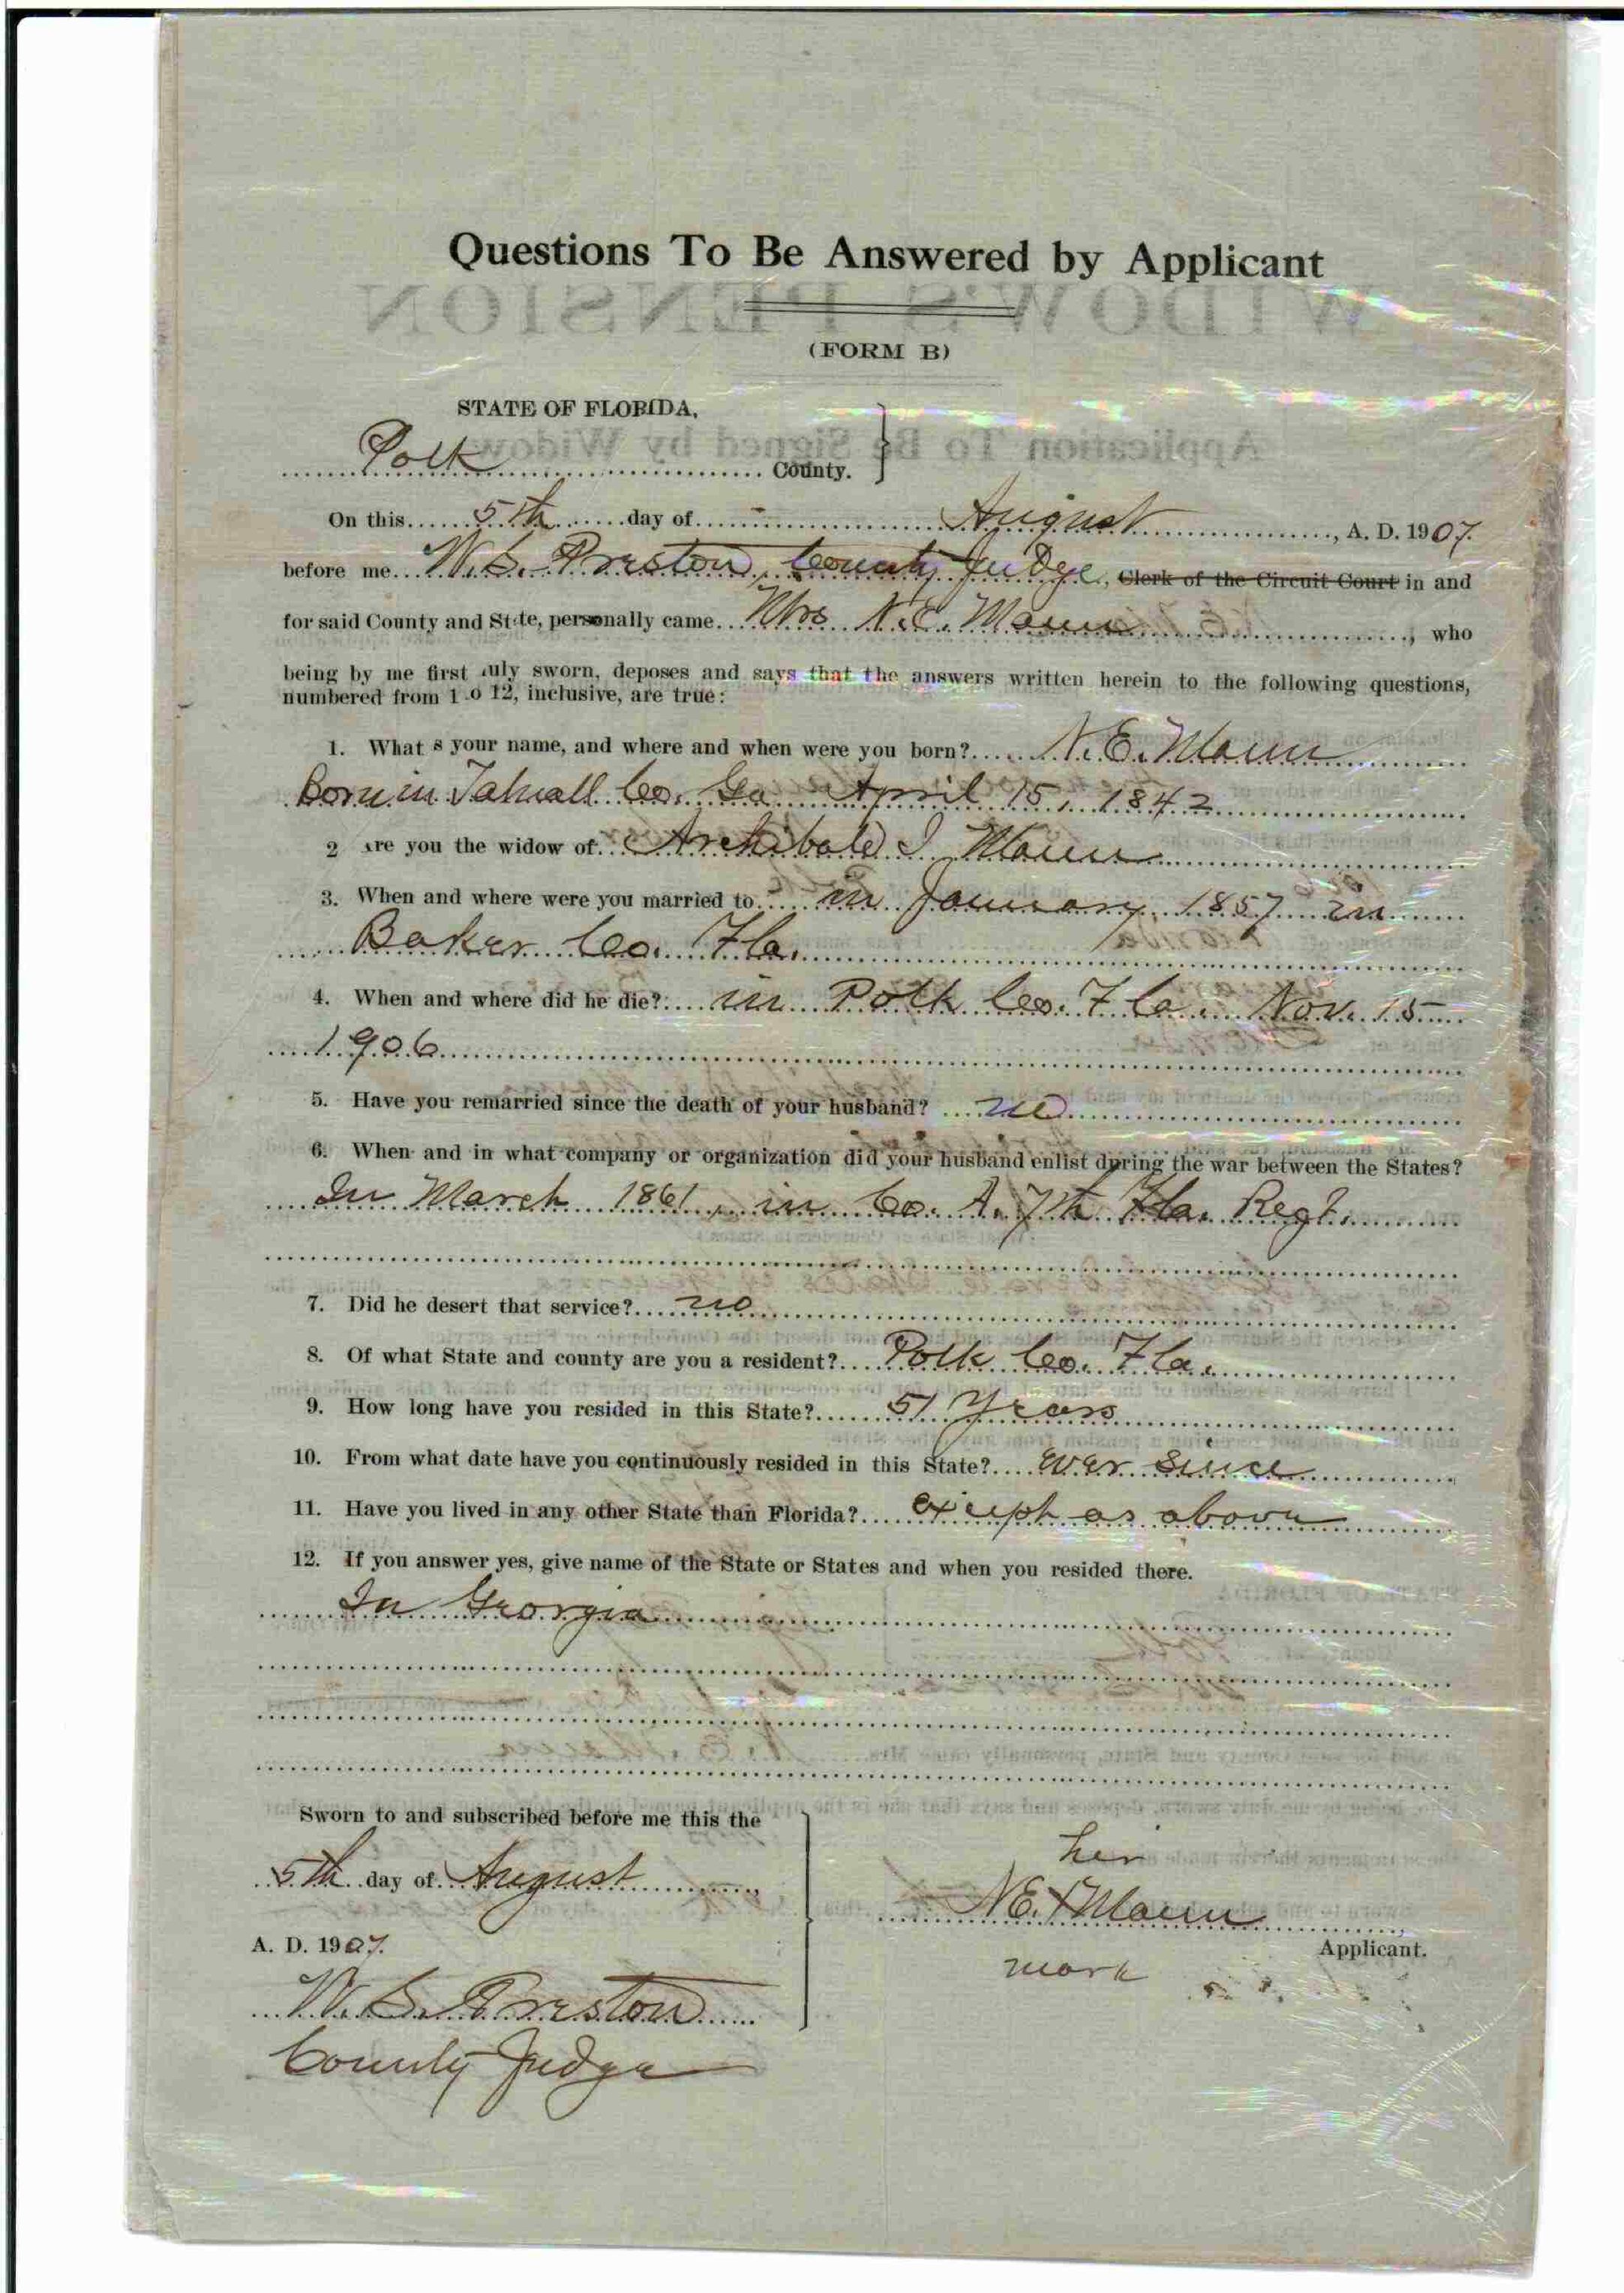 Questions To Be Answered by Applicant
(FORM B)
STATE OF FLORIDA,
Polk County.
On this 5th day of August, A. D. 1907.
before me W. S. Preston, County Judge, Clerk of the Circuit Court in and
for said County and State, personally came Mrs N. E. Mann, who
being by me first duly sworn, deposes and says that the answers written herein to the following questions,
numbered from 1 to 12, inclusive, are true:
1. What s your name, and where and when were you born? N. E. Mann
Born in Co. Ga April 15, 1842
2 Are you the widow of Archibald I Mann
3. When and where were you married to in January, 1857 in
Baker Co. Fla.
4. When and where did he die? in Polk Co. Fla. Nov. 15
1906
5. Have you remarried since the death of your husband? no
6. When and in what company or organization did your husband enlist during the war between the States?
In March 1861, in Co. A. 7th Fla. Regt.
7. Did he desert that service? no
8. Of what State and county are you a resident? Polk Co. Fla.
9. How long have you resided in this State? 51 Years
10. From what date have you continuously resided in this State? ever since
11. Have you lived in any other State than Florida? except as above
12. If you answer yes, give name of the State or States and when you resided there.
In Georgia
Sworn to and subscribed before me this the
5th day of August,
A. D. 1907.
W. S. Preston
County Judge
her
N E. X Mann
Applicant.
mark